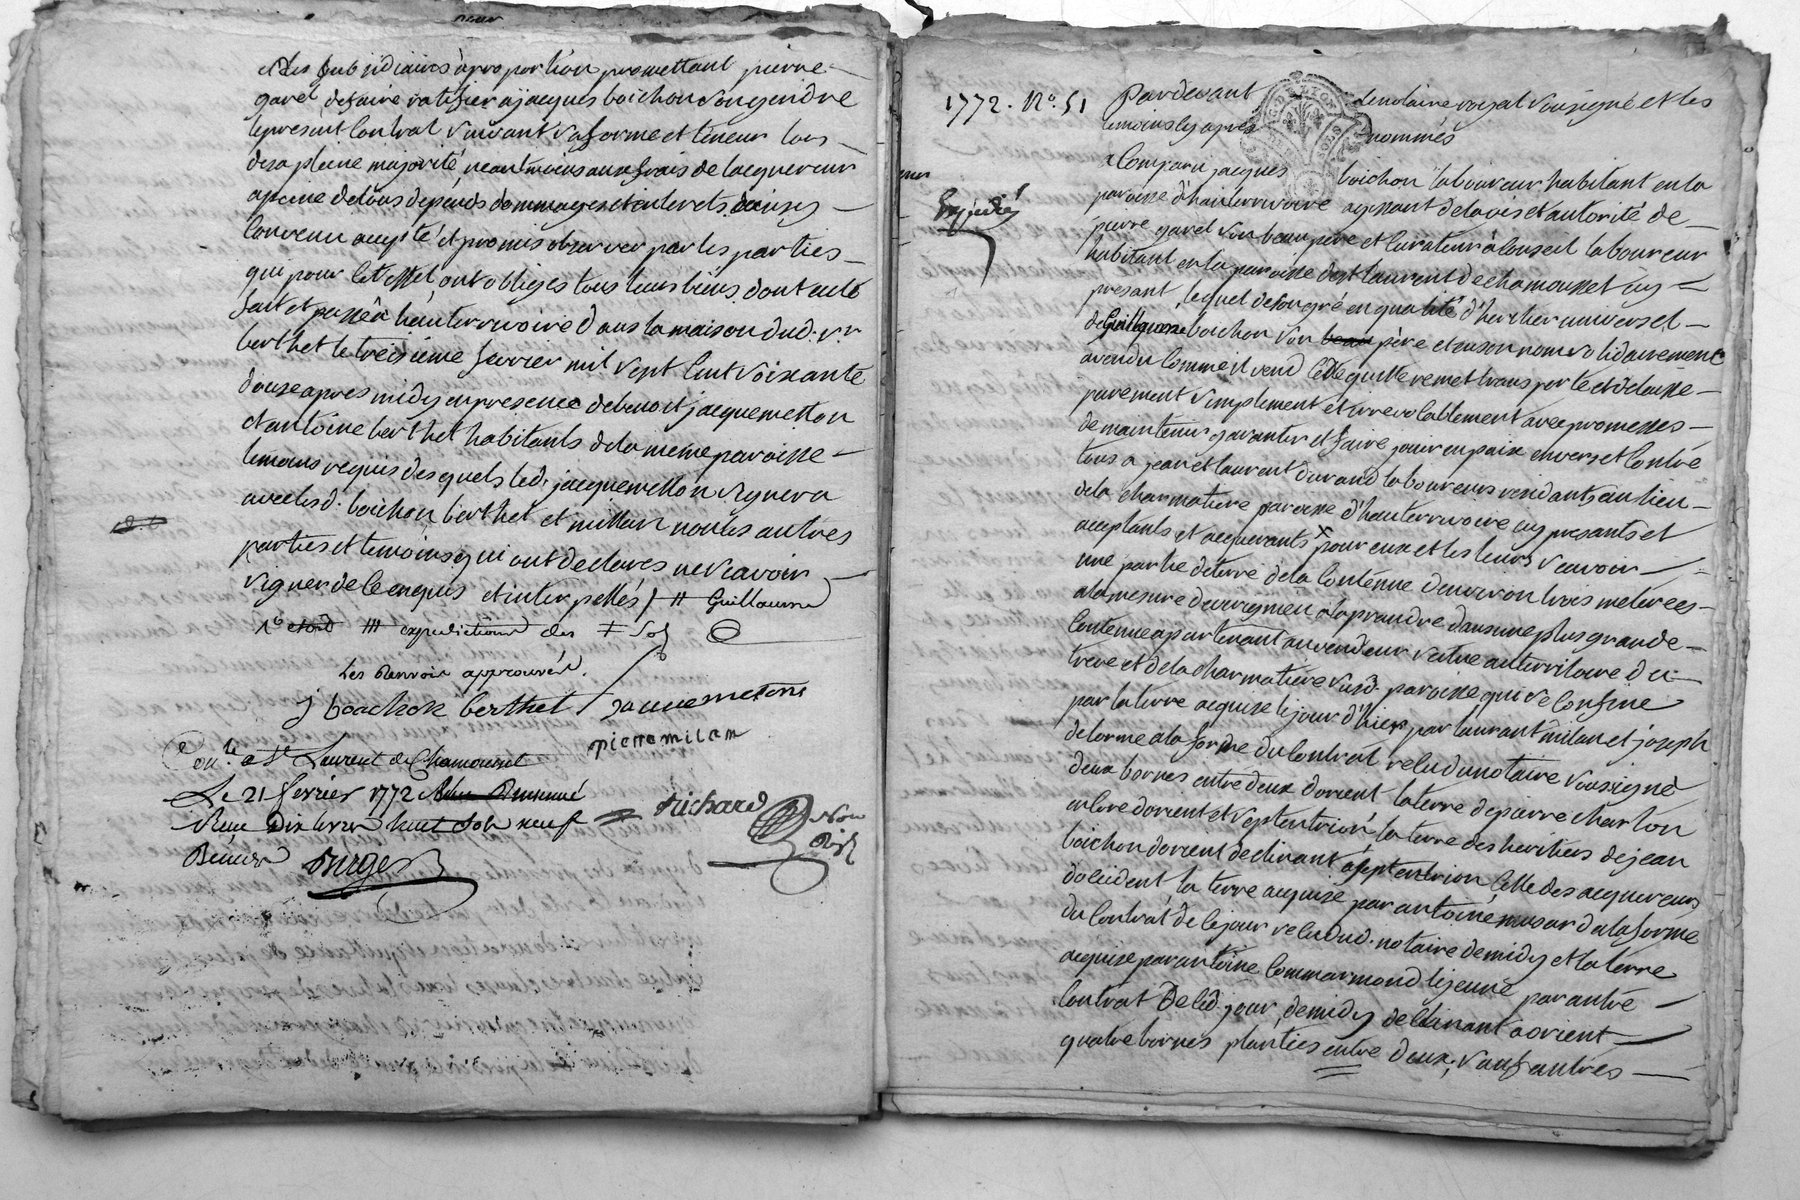 et les subsidiaires à proportion promettant pierre
garel de faire ratifier a jacques boichon son gendre
le present Contrat suivant sa forme et teneur lors
de sa pleine majorité neantmoins aux frais de lacquereur
a peine de tous depends dommages et interets, ainsy
Convenu accepté et promis observer par les parties
qui pour Cet effet ont obliges tous leurs biens, dont acte
fait et passé a hauterrivoire Dans la maison dud. sr.
berthet le treisieme fevrier mil sept Cent soixante
douse apres midy en presence de benoit jacquemetton
et antoine berthet habitants de la meme paroisse
temoins requis desquels led. jacquemetton signera
avec lesd. boichon berthet et millan non les autres
parties et temoins qui ont declares ne scavoir
signer de Ce enquis et interpellés / # Guillaume
## expeditions des ‡ Sol
Les Renvois approuvés.
j boachon berthet jaquemeton
pierre milam
Con.le a St. Laurent de Chamousset
Le 21 fevrier 1772
Reçu Dix livres huit sols neuf
Deniers Burge
Richard
Nore
Roy
1772. No. 51
Pardevant le notaire royal soussigné et les
temoins cy apres nommés
Expedié
a Comparu jacques boichon laboureur habitant en la
paroisse d'hauterrivoire agissant de lavis et autorité de
pierre garel son beau pere et Curateur a Conseil laboureur
habitant en la paroisse de st laurent de chamousset icy
present, lequel de son gré en qualité d'heritier universel
de Guillaume boichon son beau père et en son nom solidairement
a vendu Comme il vend Cede quitte remet transporte et delaisse
purement simplement et irrevocablement avec promesses
de maintenir garantir et faire jouir en paix envers et Contre
tous a jean et laurent durand laboureurs residants au lieu
de la charmatiere paroisse d'hauterrivoire icy presants et
acceptants et acquerants x pour eux et les leurs scavoir
une partie de terre de la Contenue d'environ trois meterees
a la mesure duvergnieu a la prendre dans une plus grande
Contenue apartenant au vendeur située au territoire du
trere et de la charmatiere susd. paroisse qui se Confine
par la terre acquise le jour d'hier par laurant milan et joseph
delorme a la forme du Contrat relu du notaire soussigné
deux bornes entre deux d'orient la terre de pierre charlon
encore d'orient et septentrion la terre des heritiers de jean
boichon d'orient declinant a septentrion Celle des acquereurs,
d'occident la terre acquise par antoine musard a la forme
du Contrat de Ce jour relu dud. notaire de midy et la terre
acquise par antoine Commarmond le jeune par autre
Contrat De Ced. jour, de midy declinant a orient
quatre bornes plantées entre deux; sauf autres